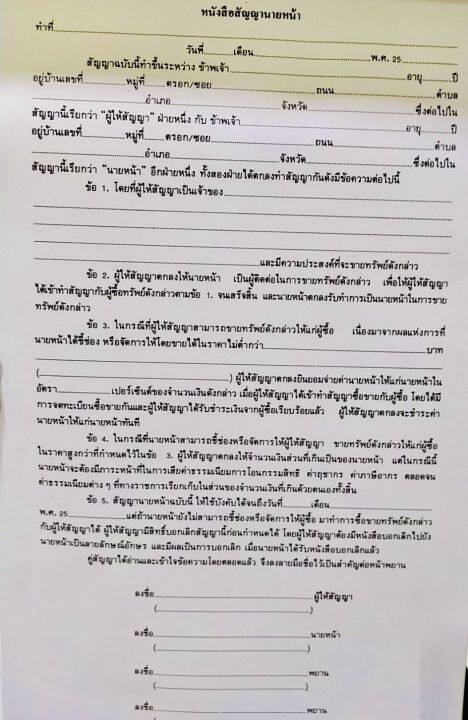 หนังสือสัญญานายหน้า
ทำที่
วันที่..............เดือน..............................พ.ศ. 25..............
สัญญาฉบับนี้ทำขึ้นระหว่าง ข้าพเจ้า..............................อายุ........ปี
อยู่บ้านเลขที่..............หมู่ที่........ตรอก/ซอย..............................ถนน..............................ตำบล
..............................อำเภอ..............................จังหวัด..............................ซึ่งต่อไปใน
สัญญานี้เรียกว่า "ผู้ให้สัญญา" ฝ่ายหนึ่ง กับ ข้าพเจ้า..............................อายุ........ปี
อยู่บ้านเลขที่..............หมู่ที่........ตรอก/ซอย..............................ถนน..............................ตำบล
..............................อำเภอ..............................จังหวัด..............................ซึ่งต่อไปใน
สัญญานี้เรียกว่า "นายหน้า" อีกฝ่ายหนึ่ง ทั้งสองฝ่ายได้ตกลงทำสัญญากันดังมีข้อความต่อไปนี้
ข้อ 1. โดยที่ผู้ให้สัญญาเป็นเจ้าของ..............................
..............................และมีความประสงค์ที่จะขายทรัพย์ดังกล่าว
ข้อ 2. ผู้ให้สัญญาตกลงให้นายหน้า เป็นผู้ติดต่อในการขายทรัพย์ดังกล่าว เพื่อให้ผู้ให้สัญญา
ได้เข้าทำสัญญากับผู้ซื้อทรัพย์ดังกล่าวตามข้อ 1. จนเสร็จสิ้น และนายหน้าตกลงรับทำการเป็นนายหน้าในการขาย
ทรัพย์ดังกล่าว
ข้อ 3. ในกรณีที่ผู้ให้สัญญาสามารถขายทรัพย์ดังกล่าวให้แก่ผู้ซื้อ เนื่องมาจากผลแห่งการที่
นายหน้าได้ชี้ช่อง หรือจัดการให้โดยขายได้ในราคาไม่ต่ำกว่า..............................บาท
(..............................) ผู้ให้สัญญาตกลงยินยอมจ่ายค่านายหน้าให้แก่นายหน้าใน
อัตรา..............เปอร์เซ็นต์ของจำนวนเงินดังกล่าว เมื่อผู้ให้สัญญาได้เข้าทำสัญญาซื้อขายกับผู้ซื้อ โดยได้มี
การจดทะเบียนซื้อขายกันและผู้ให้สัญญาได้รับชำระเงินจากผู้ซื้อเรียบร้อยแล้ว ผู้ให้สัญญาตกลงจะชำระค่า
นายหน้าให้แก่นายหน้าทันที
ข้อ 4. ในกรณีที่นายหน้าสามารถชี้ช่องหรือจัดการให้ผู้ให้สัญญา ขายทรัพย์ดังกล่าวให้แก่ผู้ซื้อ
ในราคาสูงกว่าที่กำหนดไว้ในข้อ 3. ผู้ให้สัญญาตกลงให้จำนวนเงินส่วนที่เกินเป็นของนายหน้า แต่ในกรณีนี้
นายหน้าจะต้องมีภาระหน้าที่ในการเสียค่าธรรมเนียมการโอนกรรมสิทธิ ค่าฤชากร ค่าภาษีอากร ตลอดจน
ค่าธรรมเนียมต่าง ๆ ที่ทางราชการเรียกเก็บในส่วนของจำนวนเงินที่เกินด้วยตนเองทั้งสิ้น
ข้อ 5. สัญญานายหน้าฉบับนี้ ให้ใช้บังคับได้จนถึงวันที่..............เดือน..............
พ.ศ. 25..............แต่ถ้านายหน้ายังไม่สามารถชี้ช่องหรือจัดการให้ผู้ซื้อ มาทำการซื้อขายทรัพย์ดังกล่าว
กับผู้ให้สัญญาได้ ผู้ให้สัญญามีสิทธิ์บอกเลิกสัญญานี้ก่อนกำหนดได้ โดยผู้ให้สัญญาต้องมีหนังสือบอกเลิกไปยัง
นายหน้าเป็นลายลักษณ์อักษร และมีผลเป็นการบอกเลิก เมื่อนายหน้าได้รับหนังสือบอกเลิกแล้ว
คู่สัญญาได้อ่านและเข้าใจข้อความโดยตลอดแล้ว จึงลงลายมือชื่อไว้เป็นสำคัญต่อหน้าพยาน
ลงชื่อ..............................ผู้ให้สัญญา
(..............................)
ลงชื่อ..............................นายหน้า
(..............................)
ลงชื่อ..............................พยาน
(..............................)
ลงชื่อ..............................พยาน